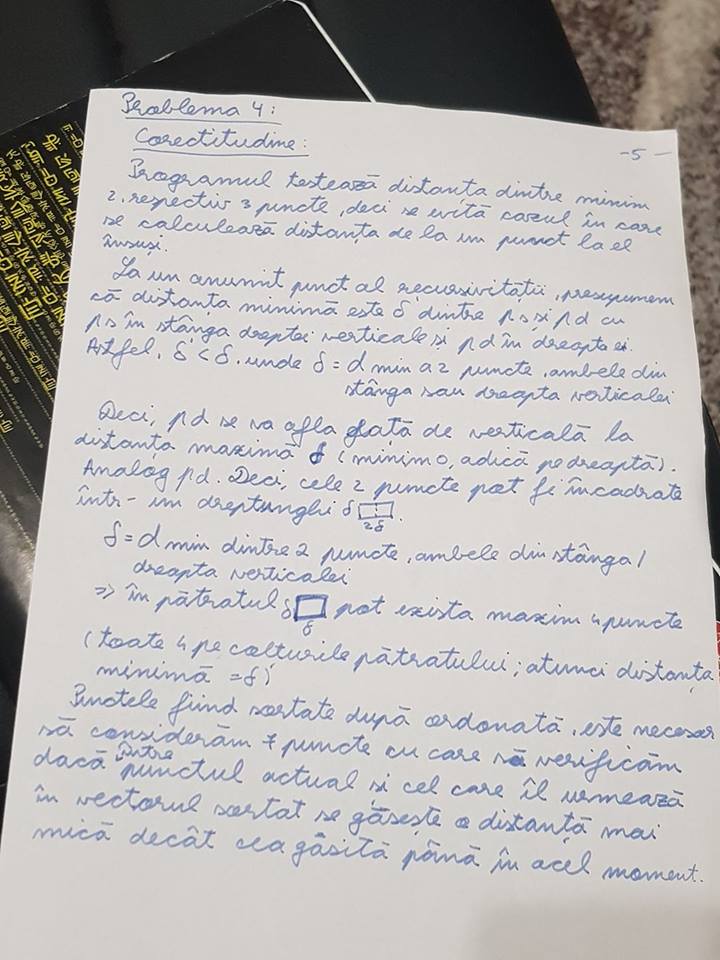 Problema 4:
Corectitudine:
-5-
Programul testează distanța dintre minim
2, respectiv 3 puncte, deci se evită cazul în care
se calculează distanța de la un punct la el
însuși.
La un anumit punct al recursivității, presupunem
că distanța minimă este δ' dintre ps și pd cu
ps în stânga dreptei verticale și pd în dreapta ei.
Astfel, δ' < δ, unde δ = d min a 2 puncte, ambele din
stânga sau dreapta verticalei
Deci, pd se va afla față de verticală la
distanța maximă δ (minim 0, adică pe dreaptă).
Analog pd. Deci, cele 2 puncte pot fi încadrate
într-un dreptunghi δ
2δ
δ = d min dintre 2 puncte, ambele din stânga/
dreapta verticalei
=> în pătratul δ pot exista maxim 4 puncte
δ
(toate 4 pe colțurile pătratului; atunci distanța
minimă = δ)
Punctele fiind sortate după ordonată, este necesar
să considerăm 7 puncte cu care să verificăm
dacă între punctul actual și cel care îl urmează
în vectorul sortat se găsește o distanță mai
mică decât cea găsită până în acel moment.